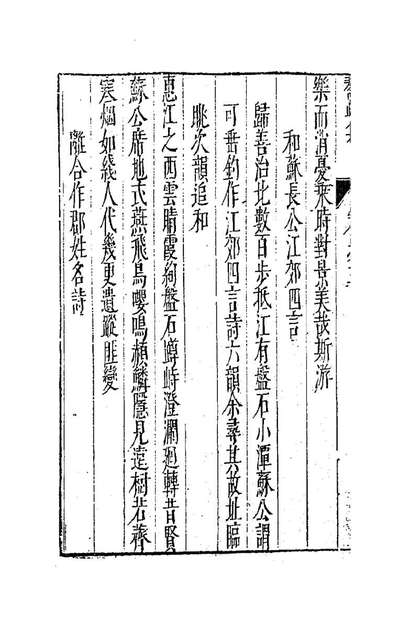 樂而消憂乘時對景美哉斯游
和蘇長公江郊四言
歸善治北數百步抵江有盤石小潭蘇公謂
可垂釣作江郊四言詩六韻余尋其故址臨
眺次韻追和
惠江之西雲晴霞絢盤石蹲峙澄瀾迴轉昔賢
蘇公席地式燕飛鳥嚶鳴頳鱗隱見遠樹若薺
寒烟如綫人代幾更遺蹤匪變
離合作郡姓名詩